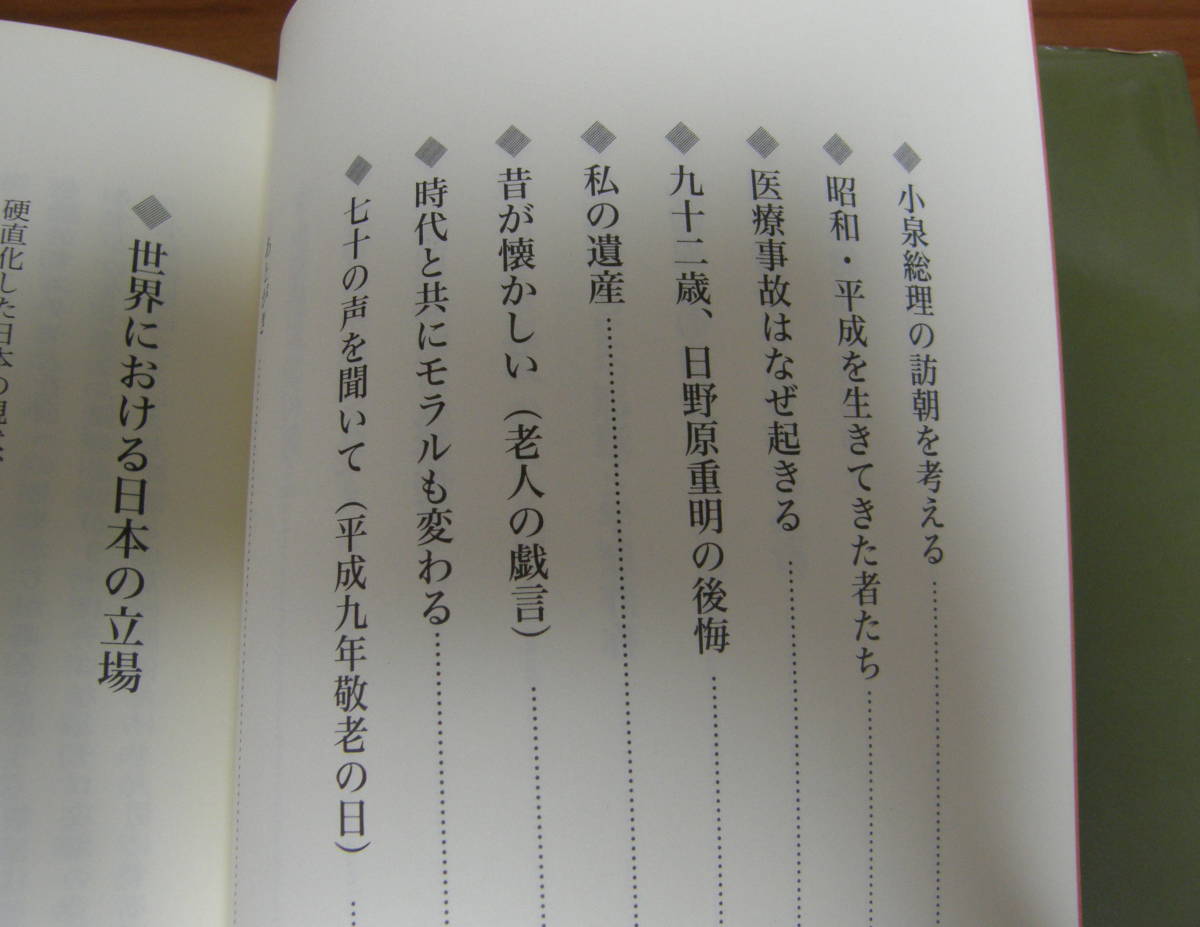 ◆小泉総理の訪朝を考える
◆昭和・平成を生きてきた者たち
◆医療事故はなぜ起きる
◆九十二歳、日野原重明の後悔
◆私の遺産
◆昔が懐かしい(老人の戯言)
◆時代と共にモラルも変わる
◆七十の声を聞いて(平成九年敬老の日)
あとがき
◆世界における日本の立場
硬直化した日本の